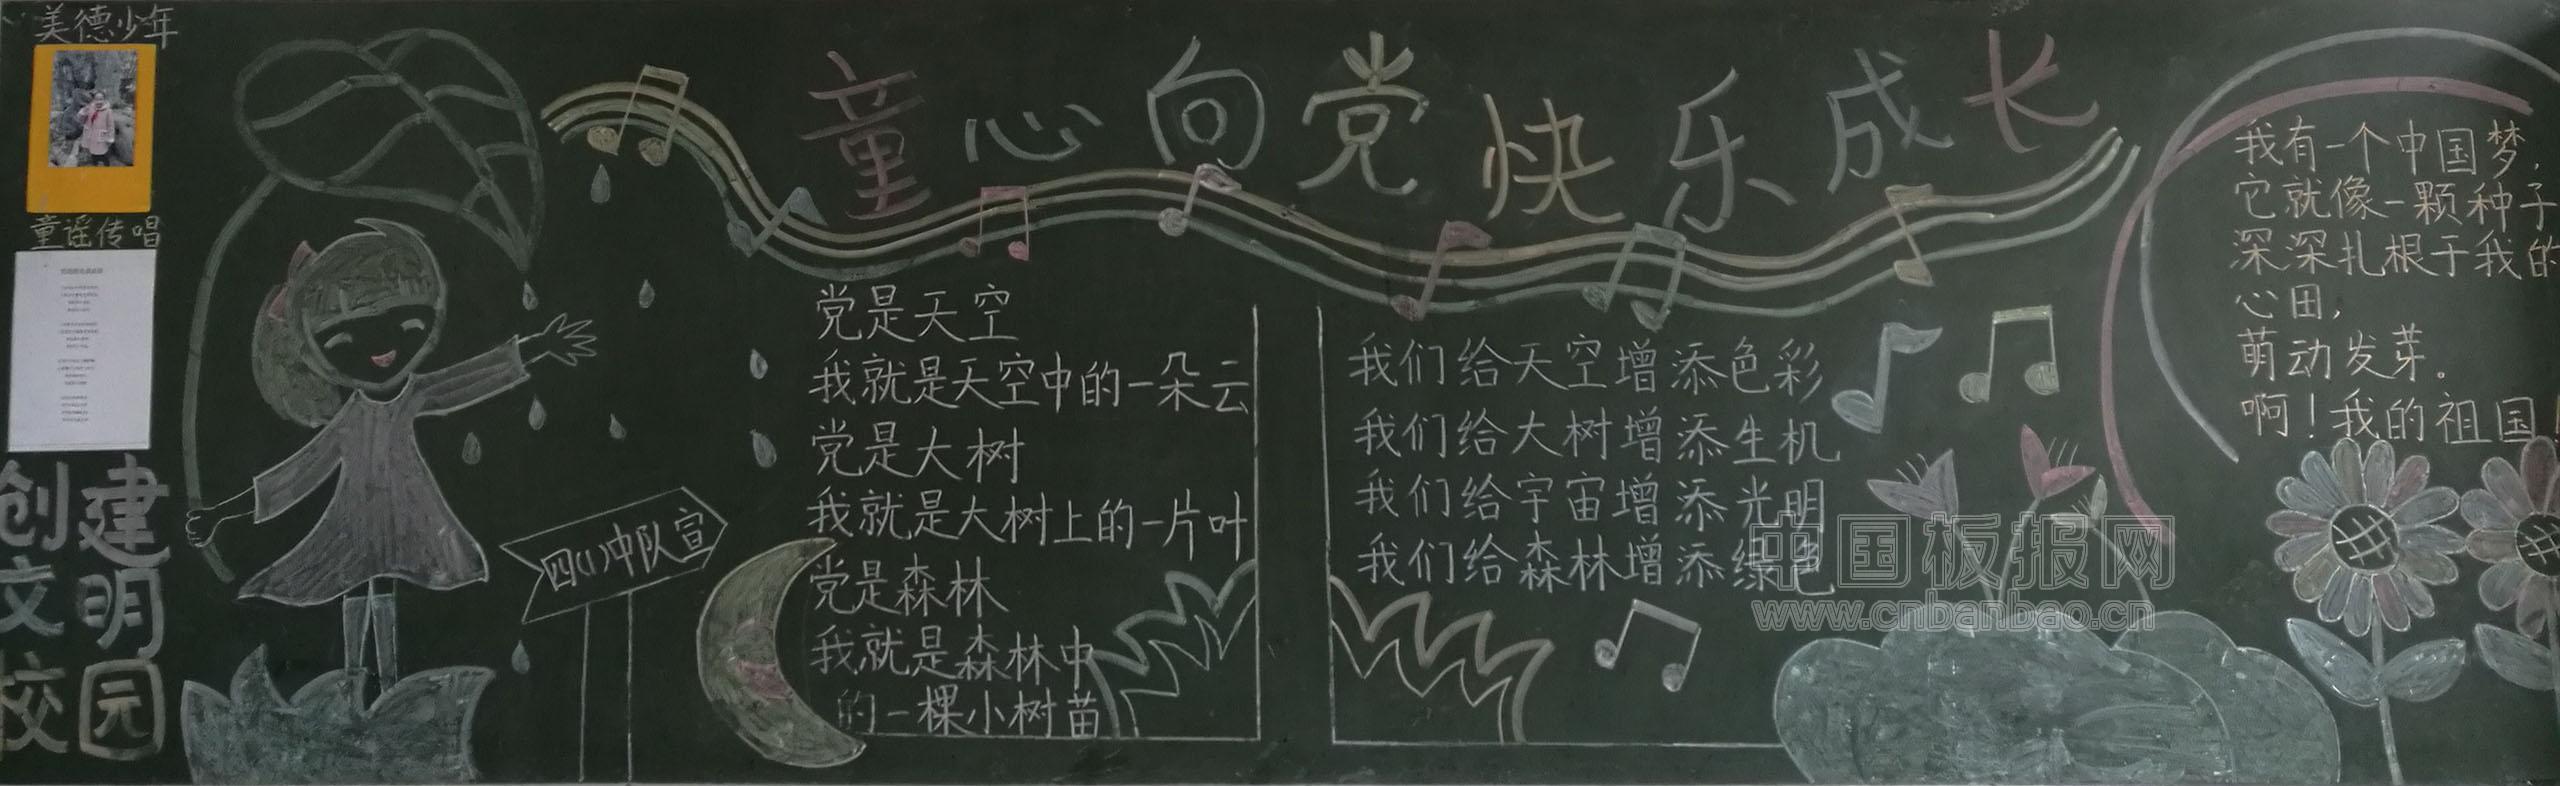 美德少年
童谣传唱
创建
文明
校园
童心向党快乐成长
四(1)中队宣
党是天空
我就是天空中的一朵云
党是大树
我就是大树上的一片叶
党是森林
我就是森林中
的一棵小树苗
我们给天空增添色彩
我们给大树增添生机
我们给宇宙增添光明
我们给森林增添绿色
我有一个中国梦,
它就像一颗种子
深深扎根于我的
心田,
萌动发芽。
啊!我的祖国!
中国板报网
www.cnbanbao.cn